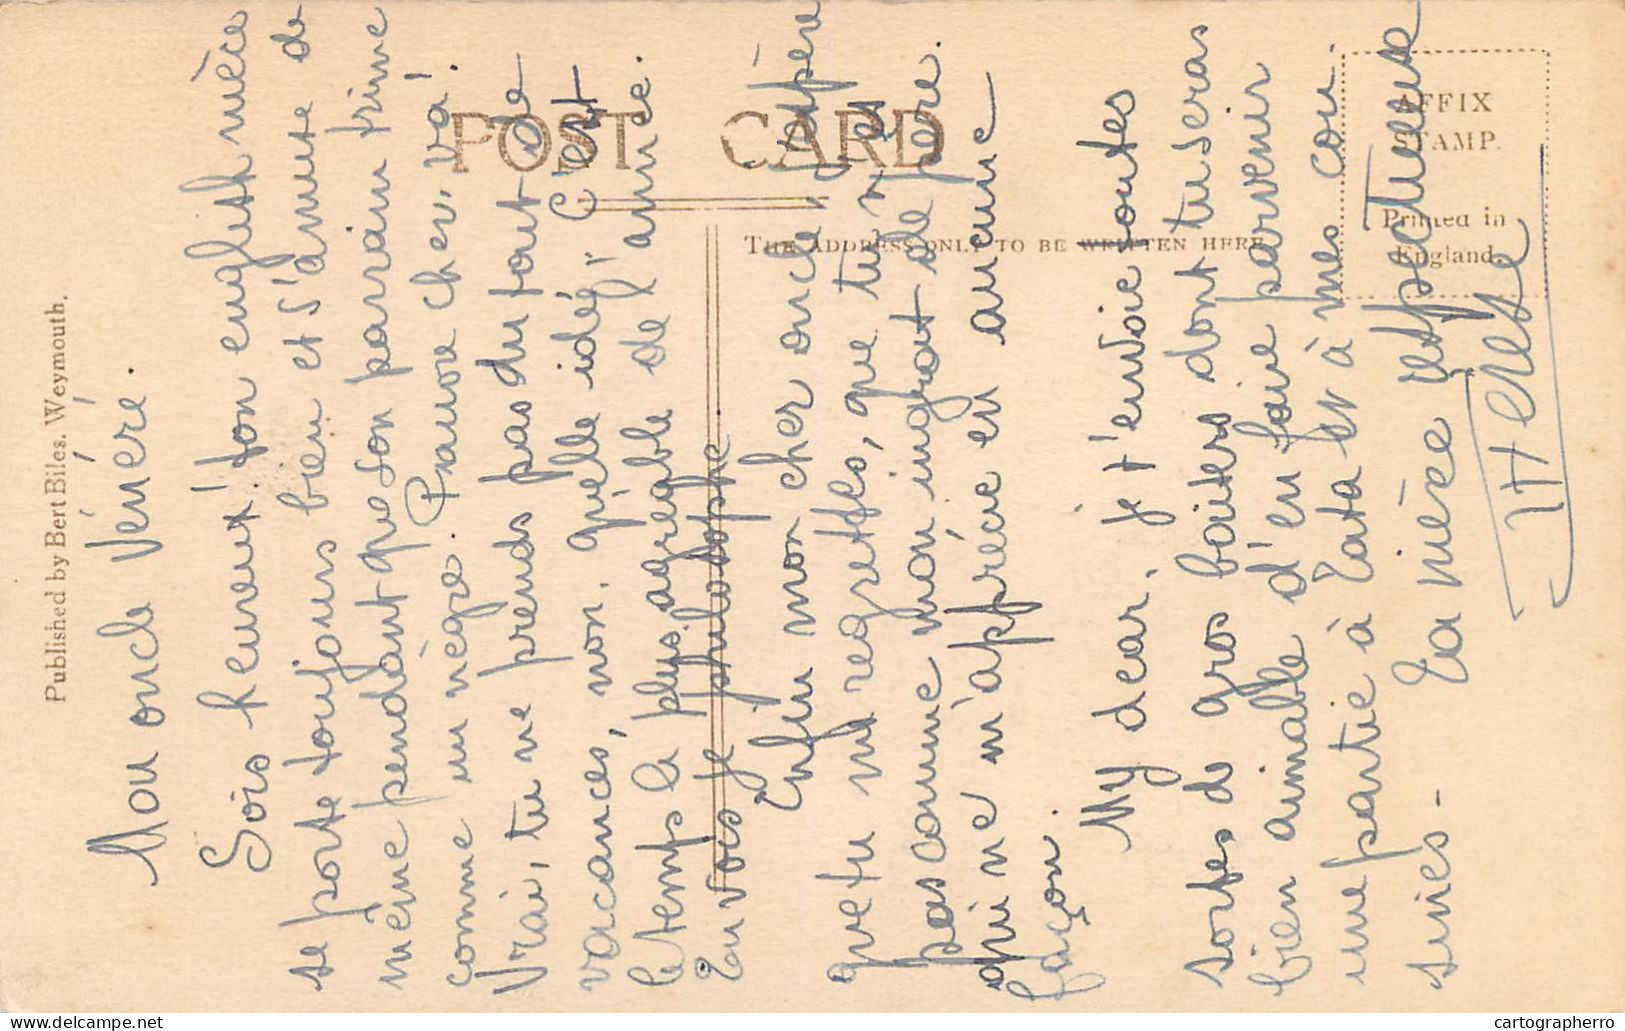 Published by Bert Biles. Weymouth.
POST CARD
THE ADDRESS ONLY TO BE WRITTEN HERE
AFFIX
STAMP.
Printed in
England.
Mon oncle Vénéré.
Sois heureux! ton english nièce
se porte toujours bien et s'amuse de
même pendant que son parrain trime
comme un nègre. Pauvre cher, va!
Vrai, tu ne prends pas du tout de
vacances, non. quelle idée! C'est
le temps le plus agréable de l'année.
Tu vois je philosophe
Enfin mon cher oncle, j'espère
que tu me regrettes, que tu n'es
pas comme mon ingrat de père
qui ne m'apprécie en aucune
façon.
My dear, je t'envoie toutes
sortes de gros baisers dont tu seras
bien aimable d'en faire parvenir
une partie à Tata et à mes cou-
sines -
Ta nièce respectueuse